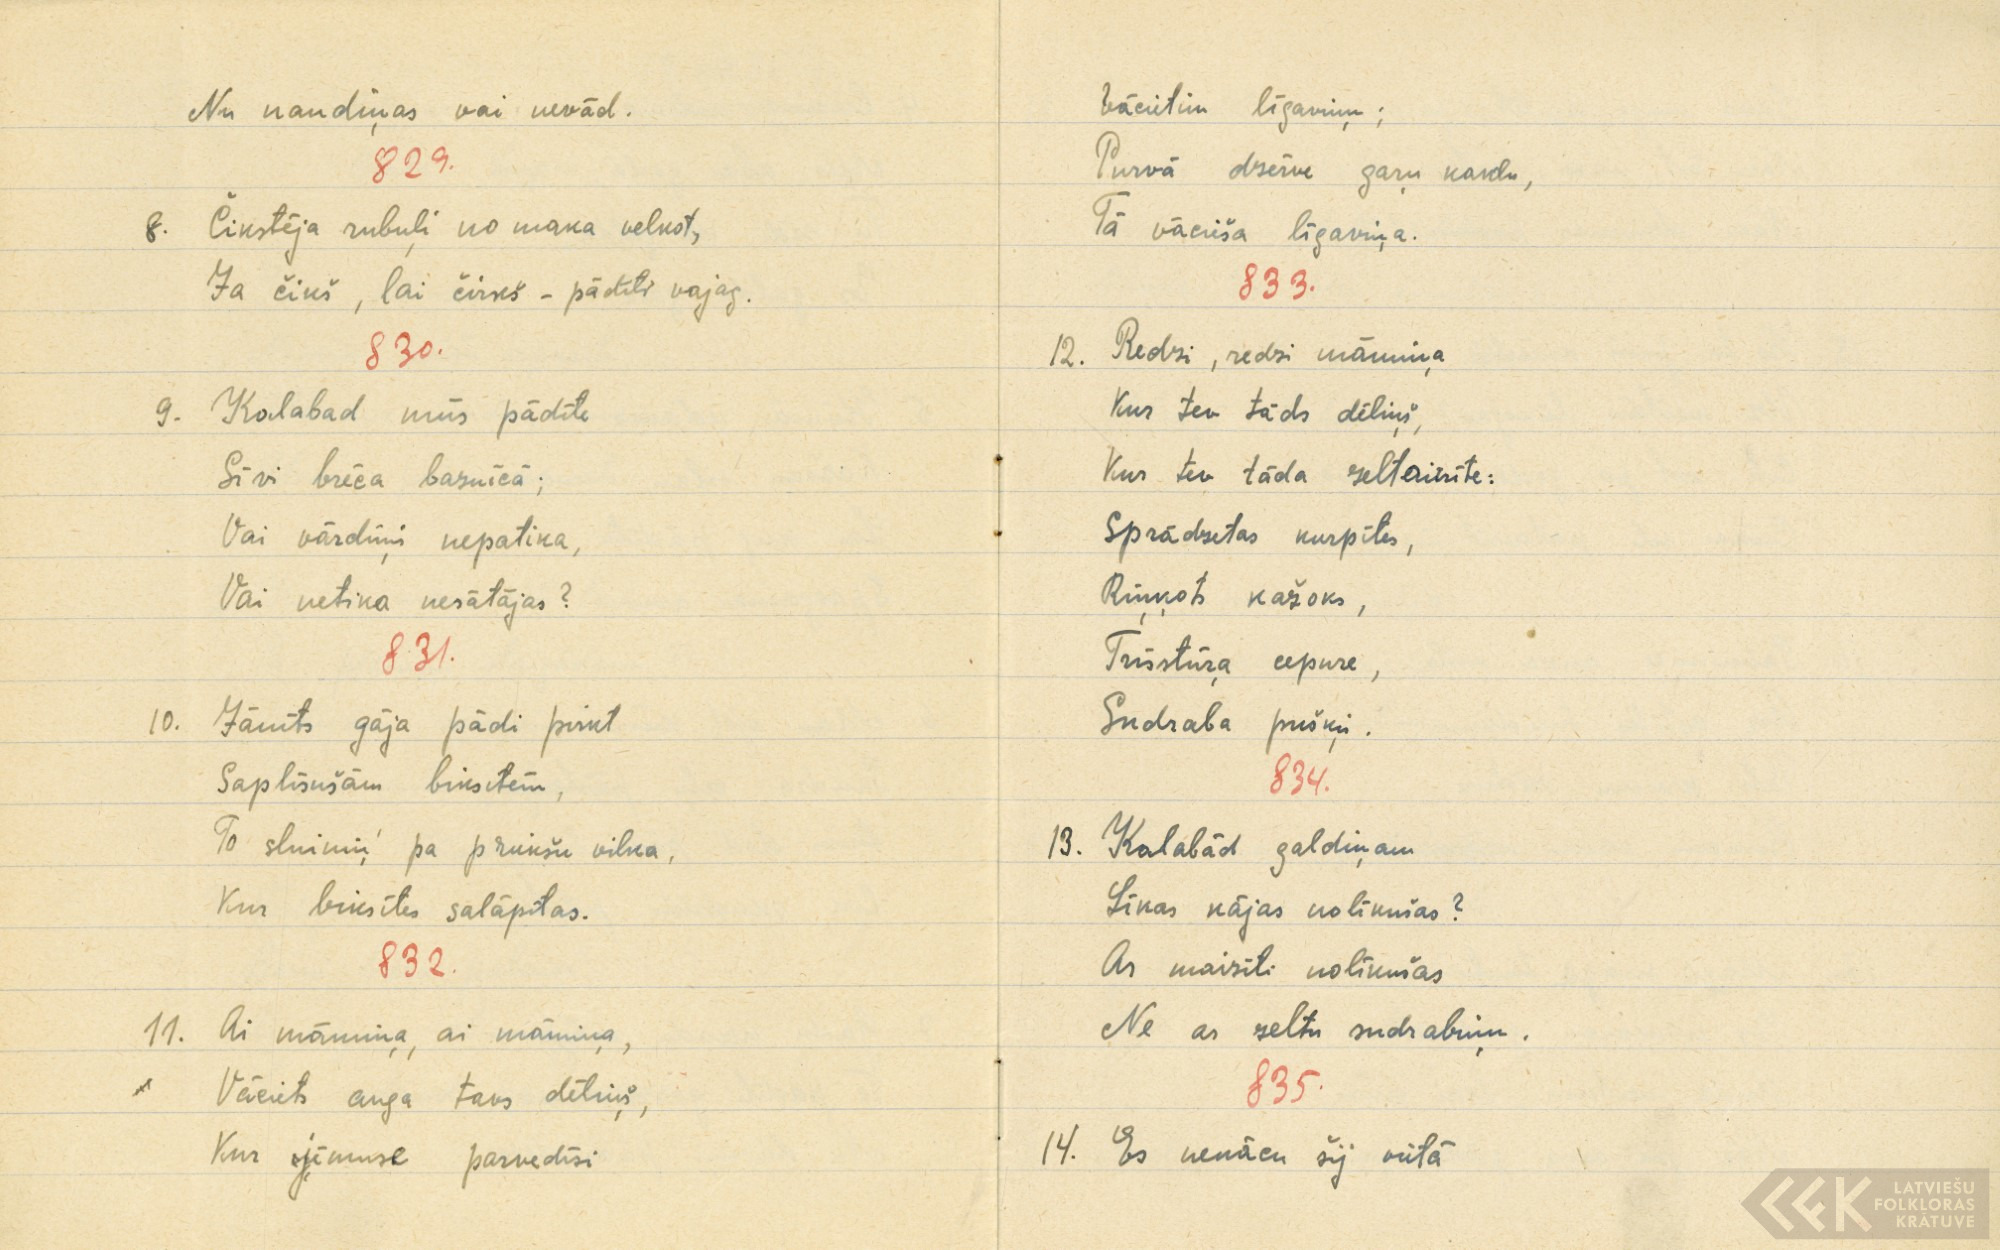 Nu naudiņas vai nevād.
829.
8. Čikstēja rubuļi no maka velkot,
Ja čikš, lai čirkš – pādīti vajag.
830.
9. Kalabad mūs pādīte
Sīvi brēca baznīcā;
Vai vārdiņi nepatika,
Vai netika nesātājas?
831.
10. Jānīts gāja pādi pirkt
Saplīsušām biksītēm,
To sluiniņ' pa priekšu vilka,
Kur biksītes salāpītas.
832.
11. Ai māmiņa, ai māmiņa,
Vāciets auga tavs dēliņš,
Kur jēmuse parvedīsi
Vācietim līgaviņu;
Purvā dzērve garu kaklu,
Tā vācieša līgaviņa.
833.
12. Redzi, redzi māmiņa
Kur tev tāds dēliņš,
Kur tev tāda zeltenīte:
Sprādzetas kurpītes,
Riņķots kažoks,
Trīsstūŗa cepure,
Sudraba pušķi.
834.
13. Kalabād galdiņam
Līkas kājas nolikušas?
Ar maizīti nolīkušas
Ne ar zeltu sudrabiņu.
835.
14. Es nenācu šij vietā
LATVIEŠU
FOLKLORAS
KRĀTUVE